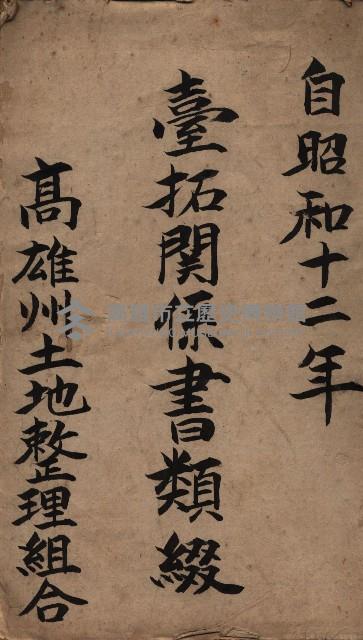 自昭和十二年
臺拓関係書類綴
高雄州土地整理組合
高雄市立歷史博物館